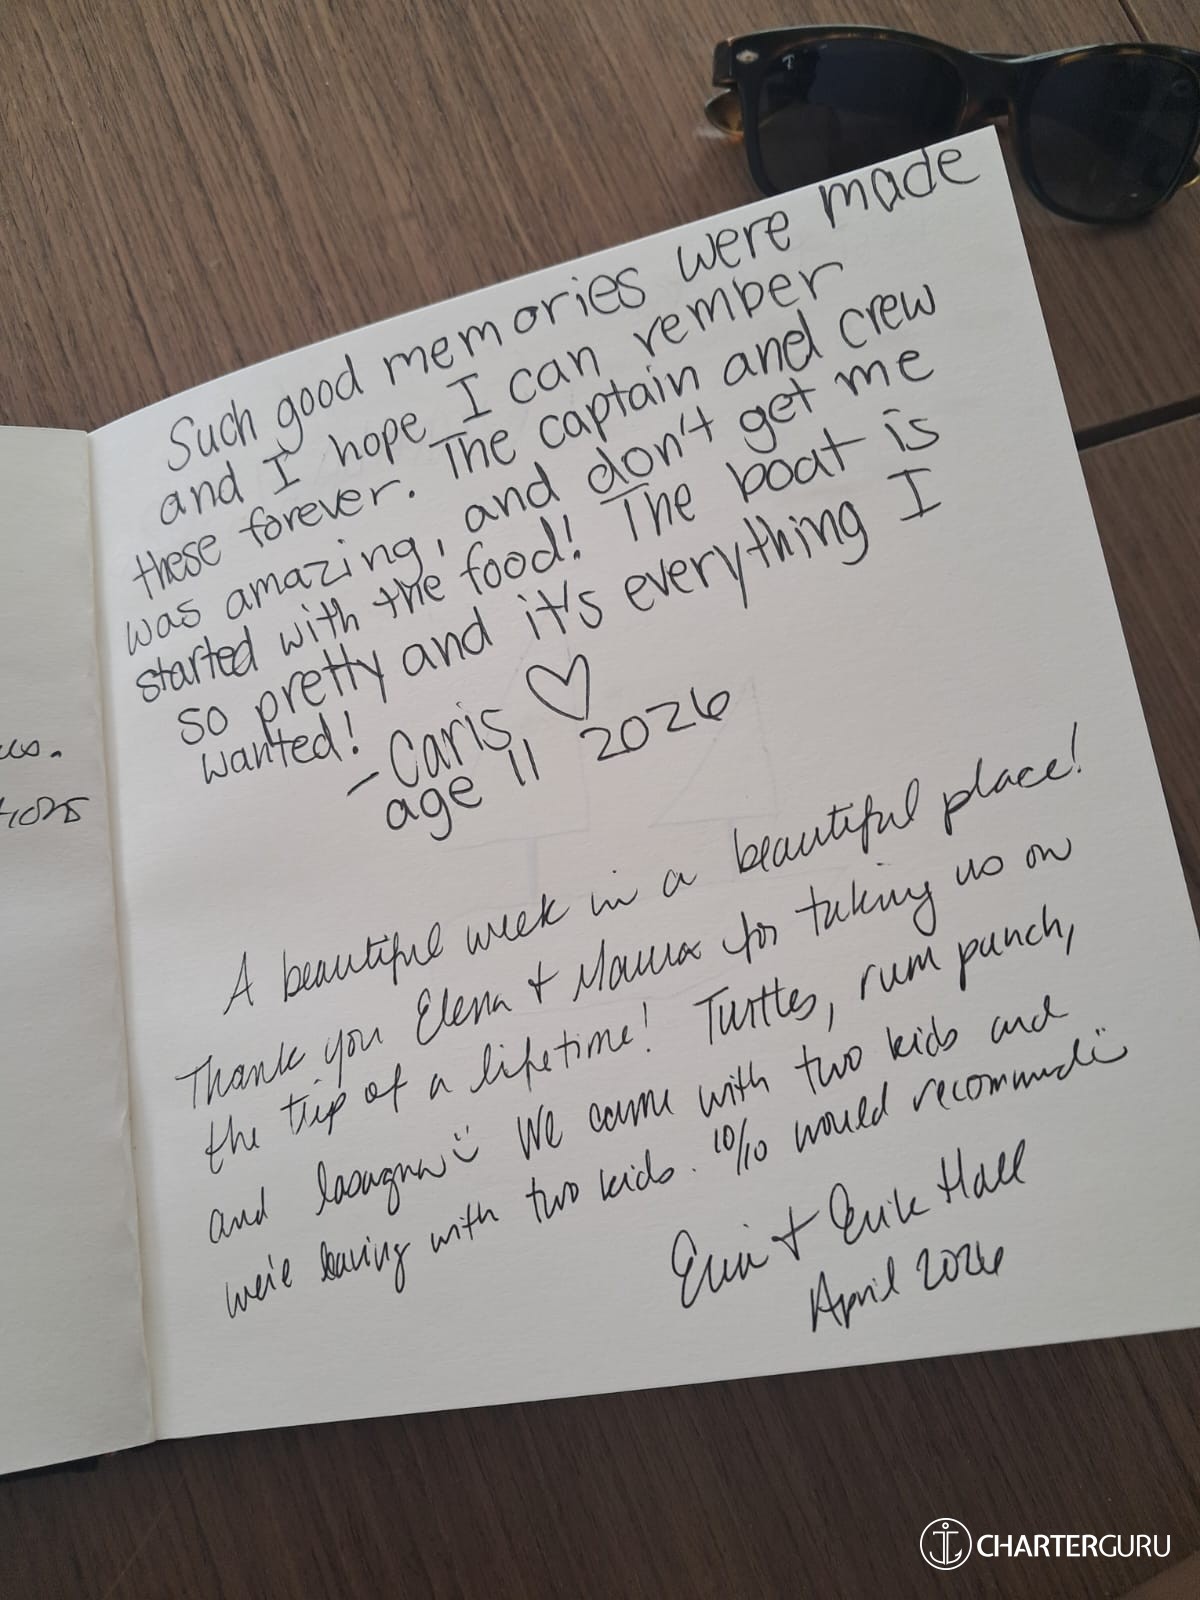 Such good memories were made
and I hope I can rember
these forever. The captain and crew
was amazing, and don't get me
started with the food! The boat is
so pretty and it's everything I
wanted!
- Caris ♡
age 11 2026
A beautiful week in a beautiful place!
Thank you Elena + for taking us on
the trip of a lifetime! Turtles, rum punch,
and lasagna :) We came with two kids and
we're leaving with two kids. 10/10 would recommend :)
Erin + Erik Hall
April 2026
CHARTERGURU